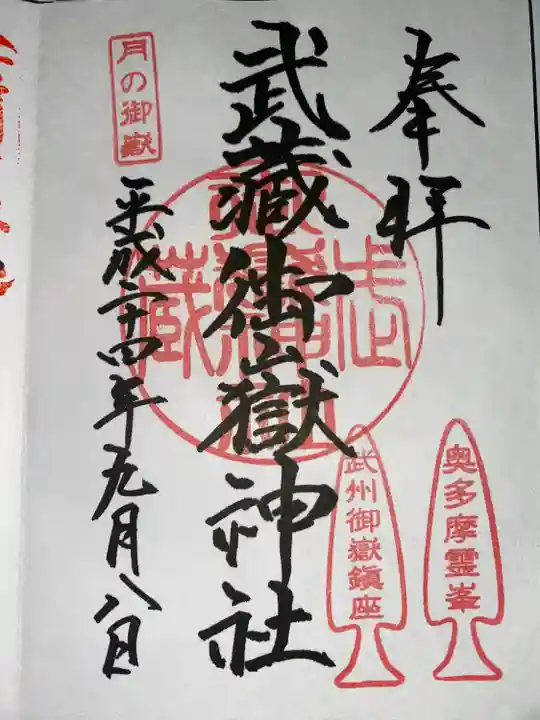 奉拝
奥多摩霊峯
武州御嶽鎮座
武蔵御嶽神社
月の御嶽
平成二十四年九月八日